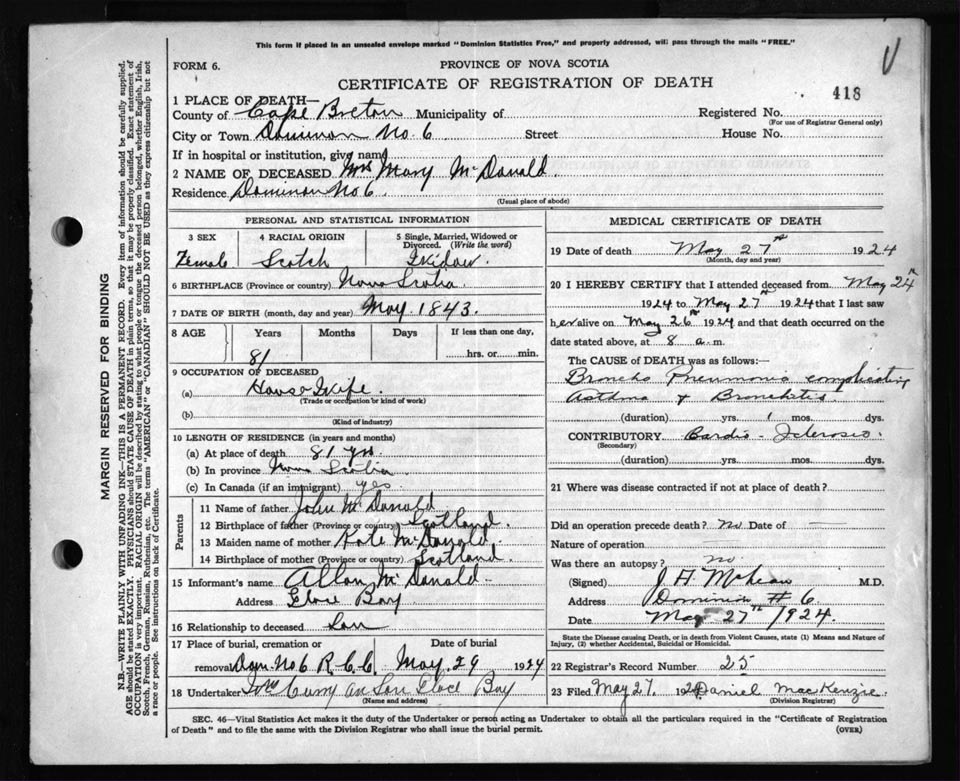 This form if placed in an unsealed envelope marked "Dominion Statistics Free," and properly addressed, will pass through the mails "FREE."
FORM 6.
PROVINCE OF NOVA SCOTIA
CERTIFICATE OF REGISTRATION OF DEATH
418
1 PLACE OF DEATH—
County of Cape Breton Municipality of Registered No.
(For use of Registrar General only)
City or Town Dominion No. 6 Street House No.
If in hospital or institution, give name
2 NAME OF DECEASED Mrs Mary McDonald.
Residence Dominion No 6.
(Usual place of abode)
PERSONAL AND STATISTICAL INFORMATION
3 SEX 4 RACIAL ORIGIN 5 Single, Married, Widowed or Divorced. (Write the word)
Female Scotch Widow.
6 BIRTHPLACE (Province or country) Nova Scotia
7 DATE OF BIRTH (month, day and year) May 1843.
8 AGE Years Months Days If less than one day,
81 hrs. or min.
9 OCCUPATION OF DECEASED
(a) House Wife.
(Trade or occupation or kind of work)
(b)
(Kind of industry)
10 LENGTH OF RESIDENCE (in years and months)
(a) At place of death 81 yrs.
(b) In province Nova Scotia
(c) In Canada (if an immigrant) yes
Parents
11 Name of father John McDonald
12 Birthplace of father (Province or country) Scotland.
13 Maiden name of mother Kate McDonald.
14 Birthplace of mother (Province or country) Scotland
15 Informant's name Allan McDonald
Address Glace Bay
16 Relationship to deceased Son
17 Place of burial, cremation or removal Date of burial
No. 6 R.C.C. May 29 1924
18 Undertaker Son Glace Bay
(Name and address)
MEDICAL CERTIFICATE OF DEATH
19 Date of death May 27th 1924
(Month, day and year)
20 I HEREBY CERTIFY that I attended deceased from May 24th
1924 to May 27th 1924 that I last saw
her alive on May 26th 1924 and that death occurred on the
date stated above, at 8 a.m.
The CAUSE of DEATH was as follows:
Broncho Pneumonia complicating
Asthma & Bronchitis
(duration) yrs. 1 mos. dys.
CONTRIBUTORY Cardio-Sclerosis
(Secondary)
(duration) yrs. mos. dys.
21 Where was disease contracted if not at place of death?
Did an operation precede death? No Date of —
Nature of operation —
Was there an autopsy? no.
(Signed) J. A. McKean M.D.
Address Dominion # 6
Date May 27th 1924.
State the Disease causing Death, or in death from Violent Causes, state (1) Means and Nature of Injury, (2) whether Accidental, Suicidal or Homicidal.
22 Registrar's Record Number 25
23 Filed May 27. 1924 Daniel MacKenzie.
(Division Registrar)
SEC. 46—Vital Statistics Act makes it the duty of the Undertaker or person acting as Undertaker to obtain all the particulars required in the "Certificate of Registration
of Death" and to file the same with the Division Registrar who shall issue the burial permit.
(OVER)
MARGIN RESERVED FOR BINDING
N.B.—WRITE PLAINLY WITH UNFADING INK—THIS IS A PERMANENT RECORD. Every item of information should be carefully supplied.
AGE should be stated EXACTLY. PHYSICIANS should STATE CAUSE OF DEATH in plain terms, so that it may be properly classified. Exact statement of
OCCUPATION is very important. RACIAL ORIGIN will be described by stating to what people or tongue the deceased person belonged, whether English, Irish,
Scotch, French, German, Russian, Ruthenian, etc. The terms "AMERICAN" or "CANADIAN" SHOULD NOT BE USED as they express citizenship but not
a race or people. See instructions on back of Certificate.